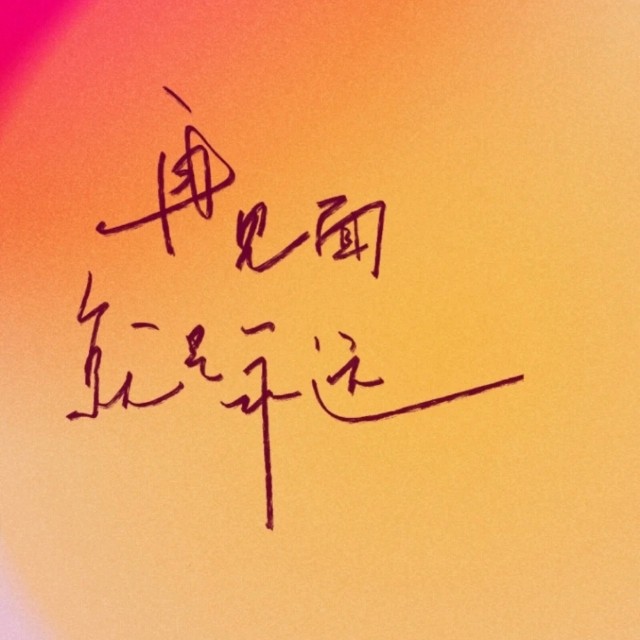 再见面
就是永远